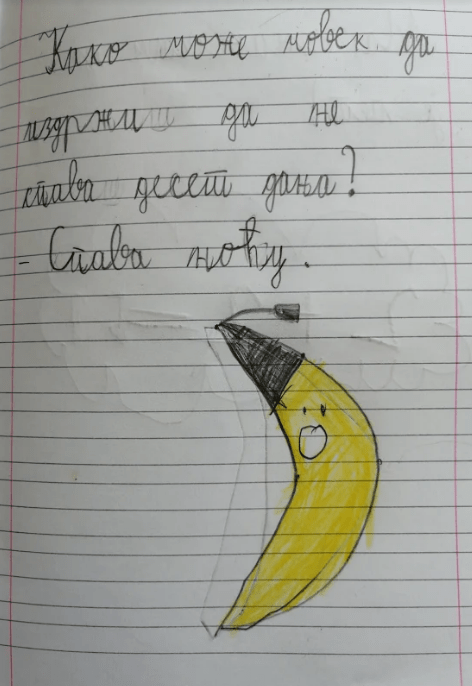 Како може човек да
издржи да не
спава десет дана?
- Спава ноћу.